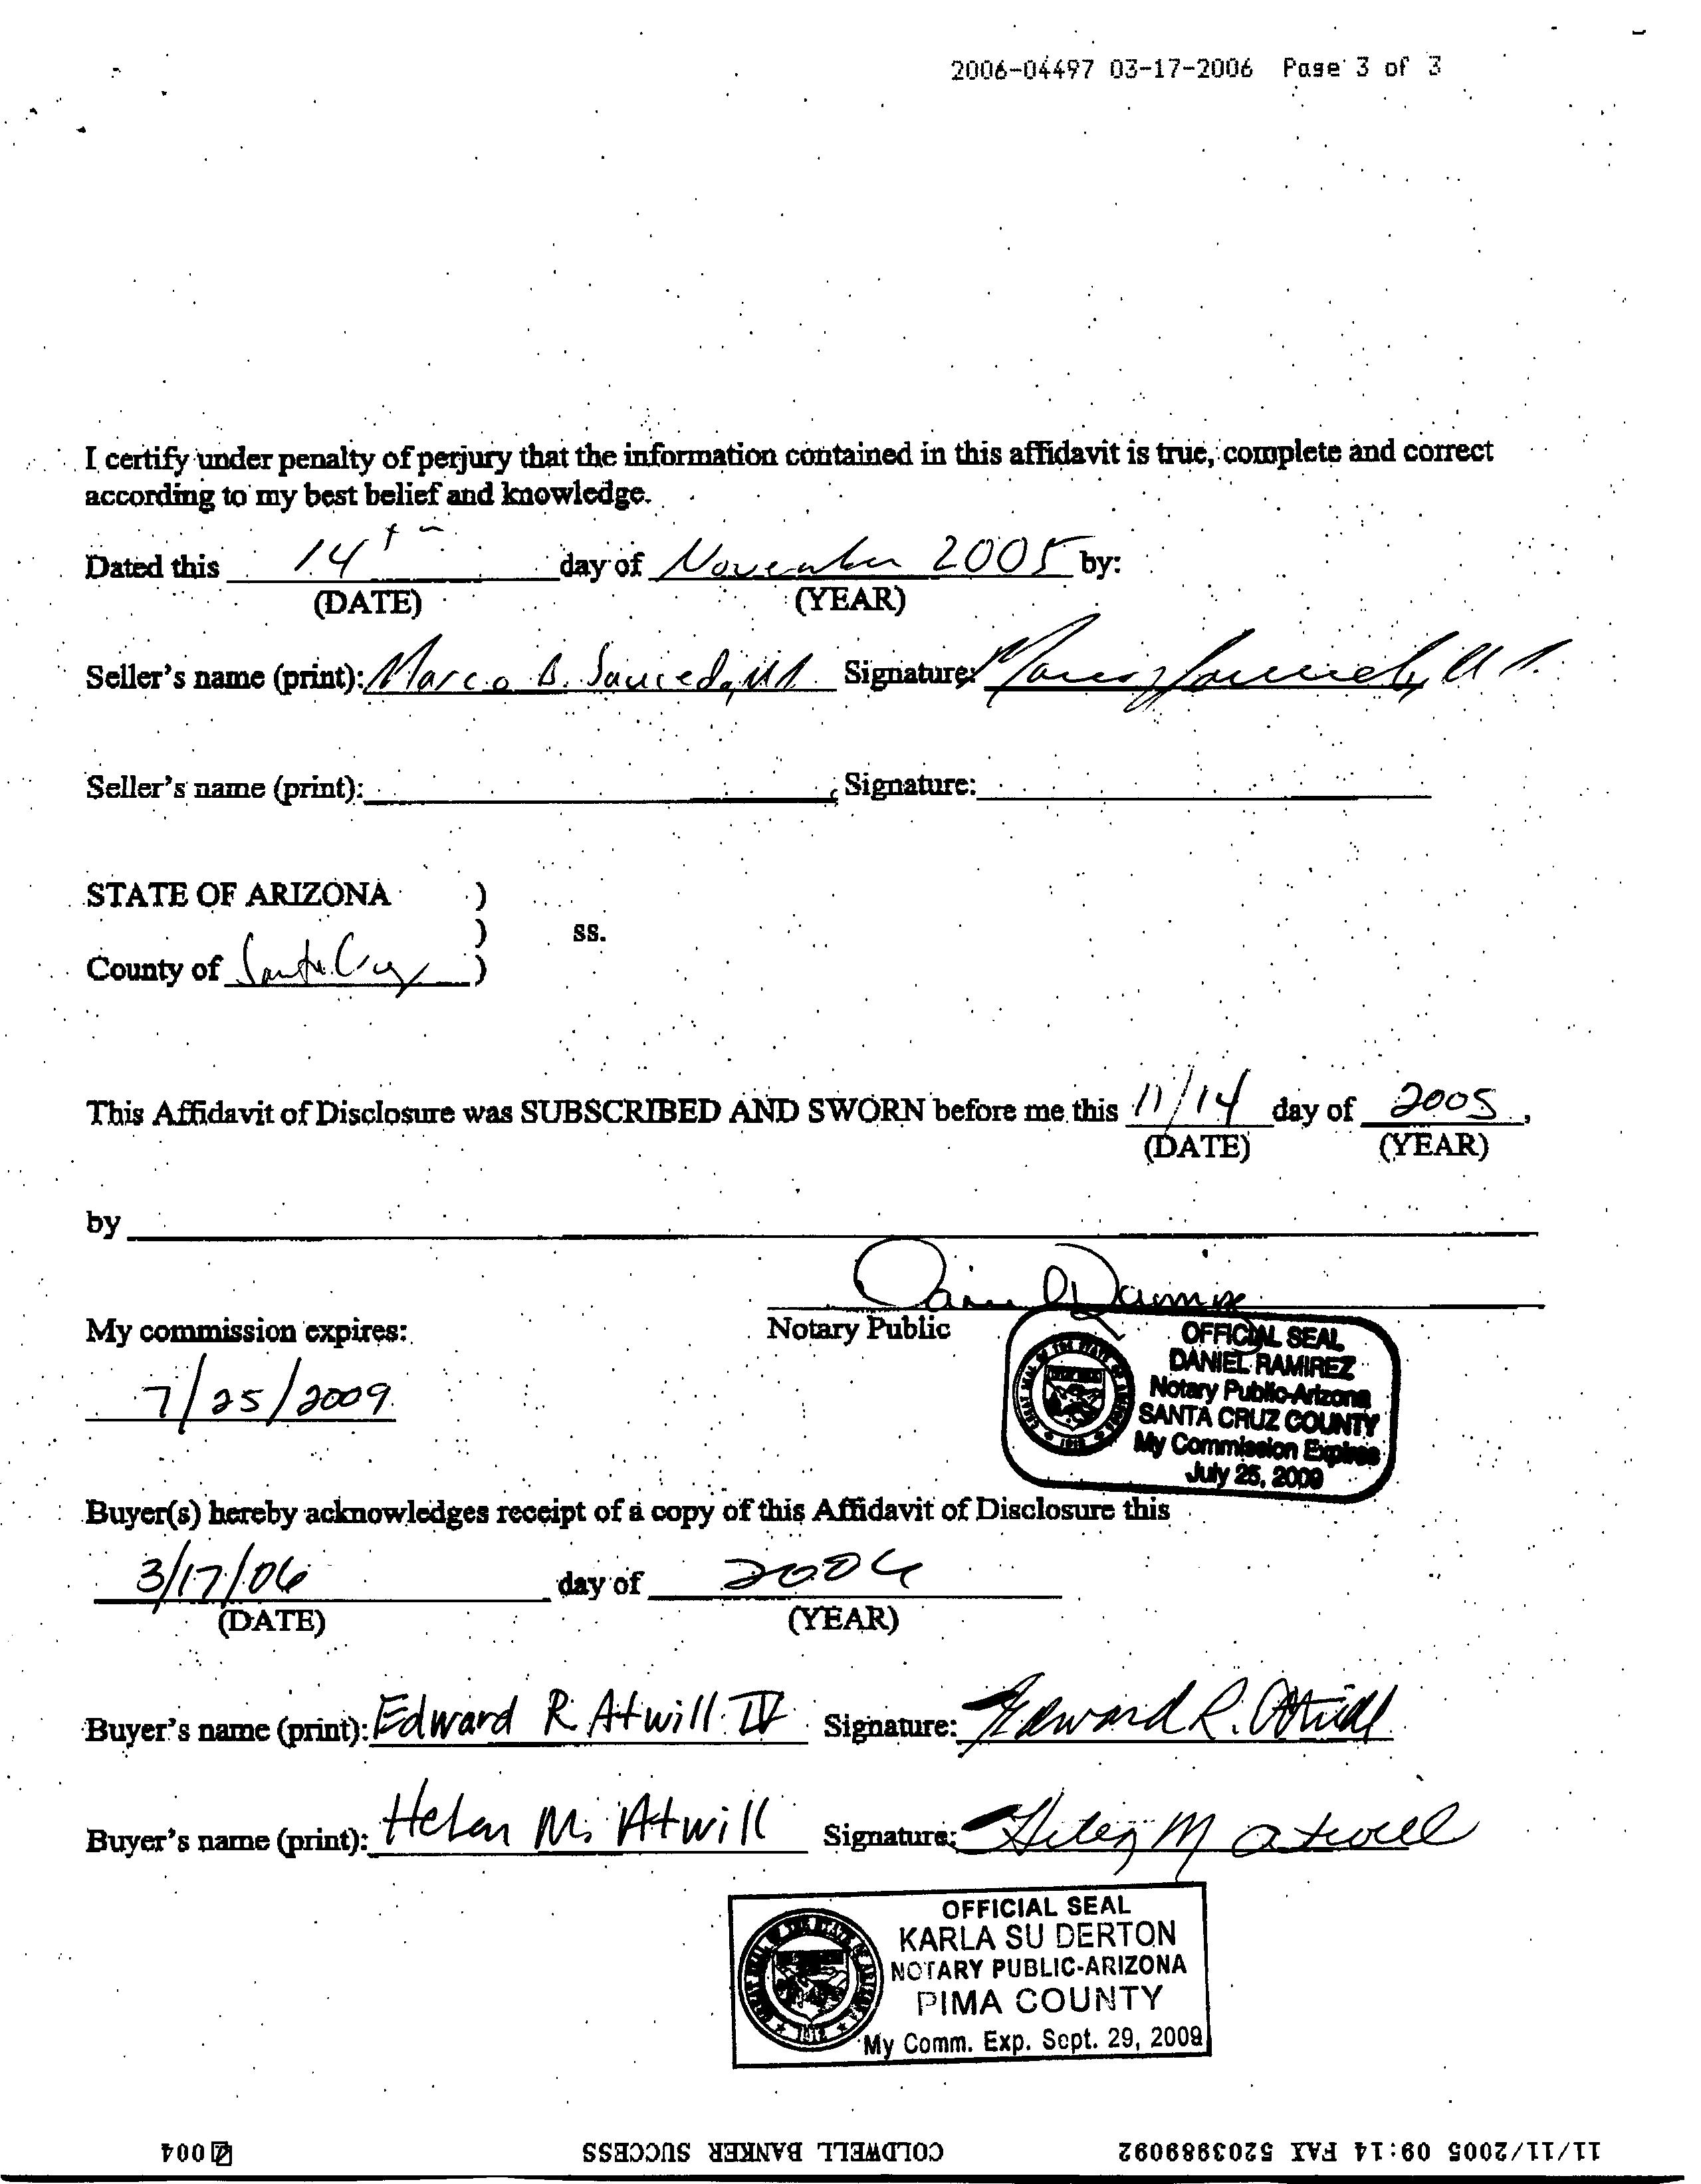 2006-04497 03-17-2006 Page 3 of 3
I certify under penalty of perjury that the information contained in this affidavit is true, complete and correct
according to my best belief and knowledge.
Dated this 14th day of November 2005 by:
(DATE) (YEAR)
Seller's name (print): Marco B. Sauceda, Md. Signature:
Seller's name (print): Signature:
STATE OF ARIZONA )
) ss.
County of Santa Cruz )
This Affidavit of Disclosure was SUBSCRIBED AND SWORN before me this 11/14 day of 2005,
(DATE) (YEAR)
by
Notary Public
My commission expires:
7/25/2009
OFFICIAL SEAL
DANIEL RAMIREZ
Notary Public-Arizona
SANTA CRUZ COUNTY
My Commission Expires
July 25, 2009
Buyer(s) hereby acknowledges receipt of a copy of this Affidavit of Disclosure this
3/17/06 day of 2006
(DATE) (YEAR)
Buyer's name (print): Edward R. Atwill IV Signature: Edward R. Atwill
Buyer's name (print): Helen M. Atwill Signature: Helen M Atwill
OFFICIAL SEAL
KARLA SU DERTON
NOTARY PUBLIC-ARIZONA
PIMA COUNTY
My Comm. Exp. Sept. 29, 2009
11/11/2005 09:14 FAX 5203989092 COLDWELL BANKER SUCCESS 004